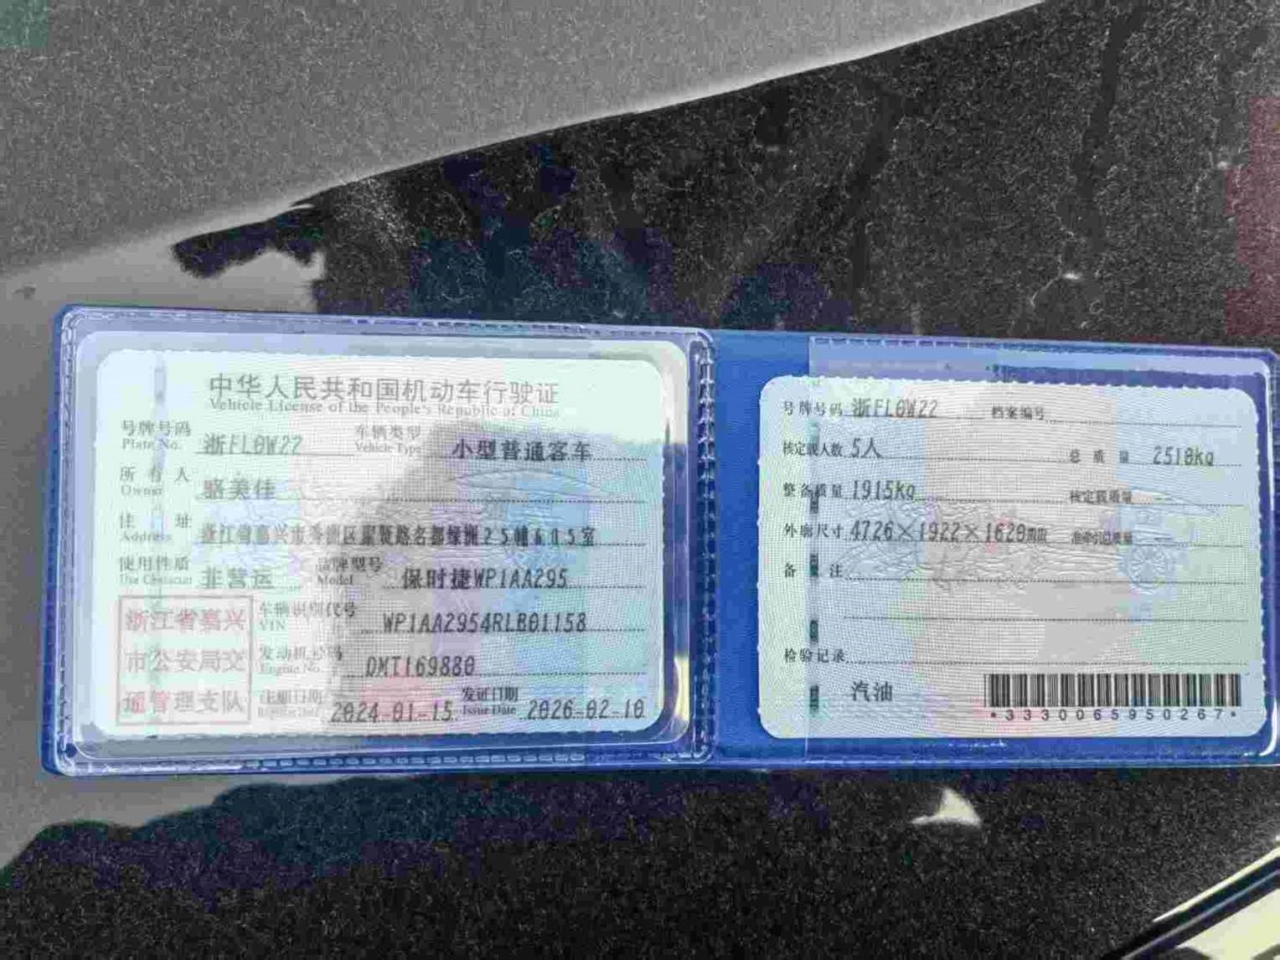 中华人民共和国机动车行驶证
Vehicle License of the People's Republic of China
号牌号码 浙FL0W22 车辆类型 小型普通客车
Plate No. Vehicle Type
所有人 骆美佳
Owner
住址 浙江省嘉兴市秀洲区 路名都绿洲25幢605室
Address
使用性质 非营运 品牌型号 保时捷WP1AA295
Use Character Model
浙江省嘉兴
市公安局交
通管理支队
车辆识别代号 WP1AA2954RLB01158
VIN
发动机号码 DMT169880
Engine No.
注册日期 2024-01-15 发证日期 2026-02-10
Register Date Issue Date
号牌号码 浙FL0W22 档案编号
核定载人数 5人 总质量 2510kg
整备质量 1915kg 核定载质量
外廓尺寸 4726×1922×1620mm 准牵引总质量
备注
检验记录
汽油
*3330065950267*